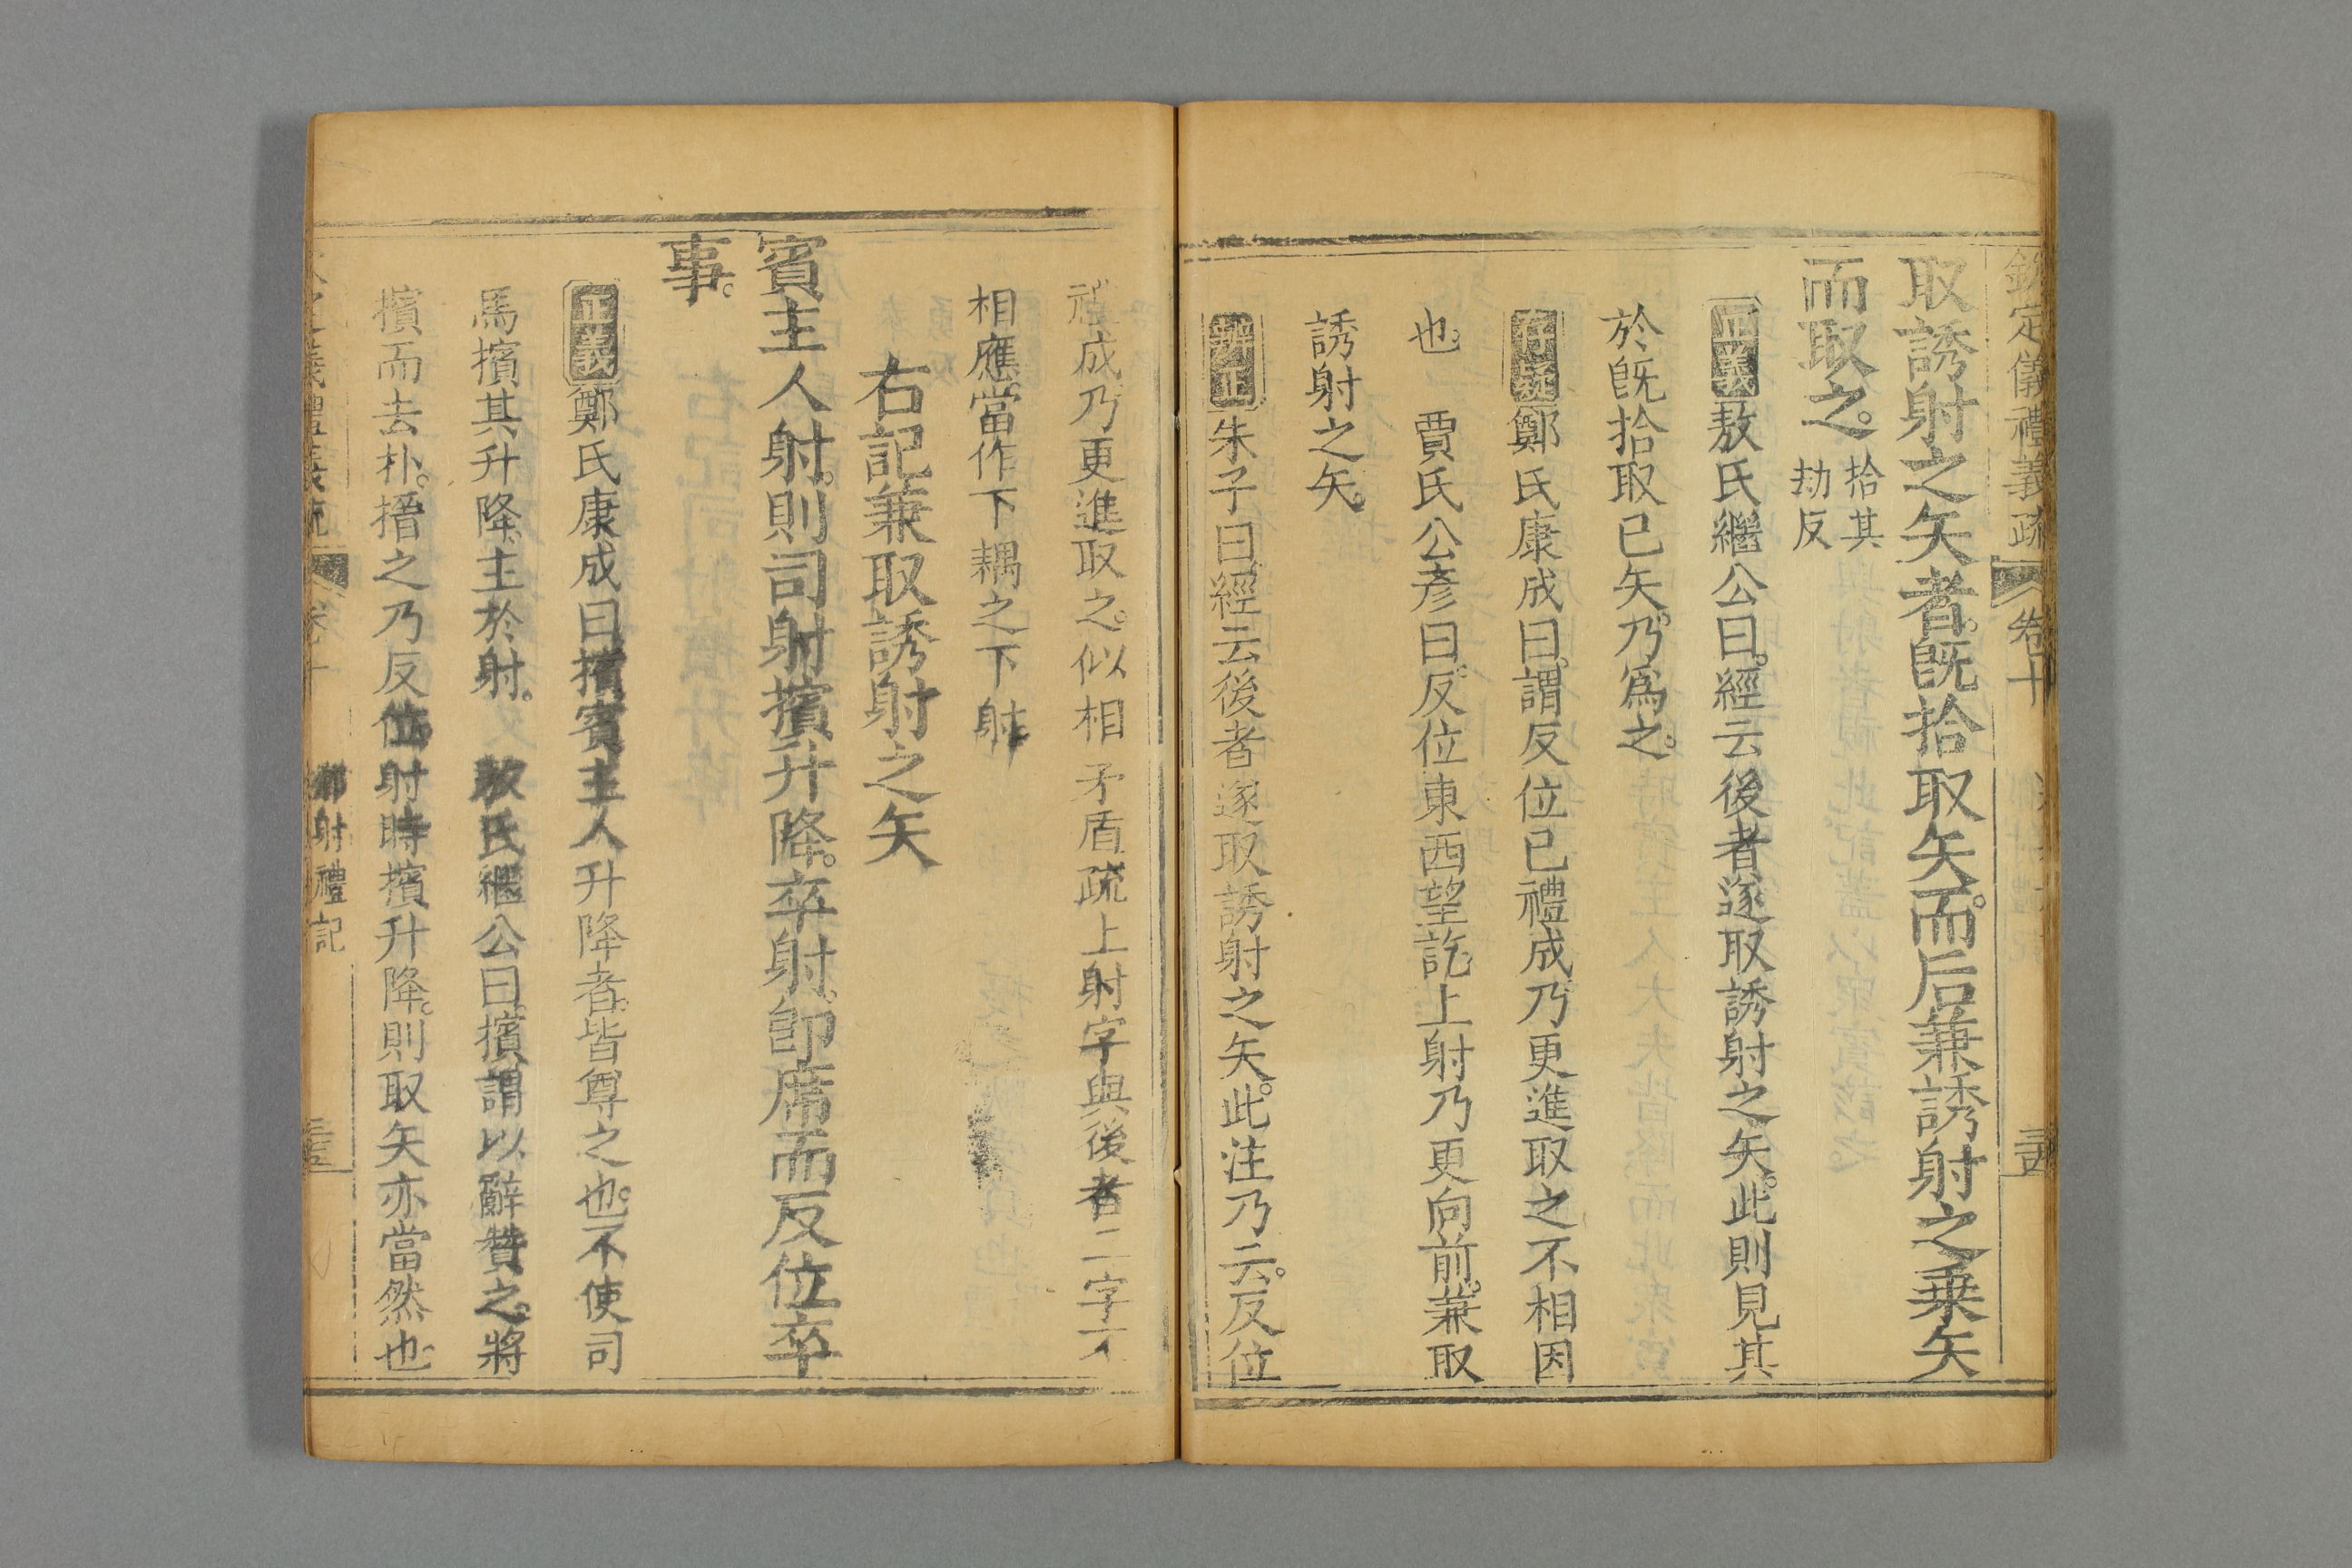 欽定儀禮義疏 卷十
取誘射之矢者。既拾取矢。而后兼誘射之乗矢
而取之。拾其劫反
正義敖氏繼公曰。經云後者遂取誘射之矢。此則見其
於既拾取已矢。乃爲之。
存疑鄭氏康成曰。謂反位已禮成。乃更進取之。不相因
也。 賈氏公彥曰。反位東西望訖。上射乃更向前。兼取
誘射之矢。
辨正朱子曰。經云後者遂取誘射之矢。此注乃云。反位
禮成。乃更進取之。似相矛盾。疏上射字與後者二字不
相應。當作下耦之下射
右記兼取誘射之矢
賓主人射。則司射擯升降。卒射。卽席而反位卒
事。
正義鄭氏康成曰擯賓主人升降者。皆尊之也。不使司
馬擯其升降。主於射。 敖氏繼公曰。擯謂以辭贊之。將
擯而去朴。搢之乃反位射時擯升降。則取矢亦當然也。
鄉射禮記